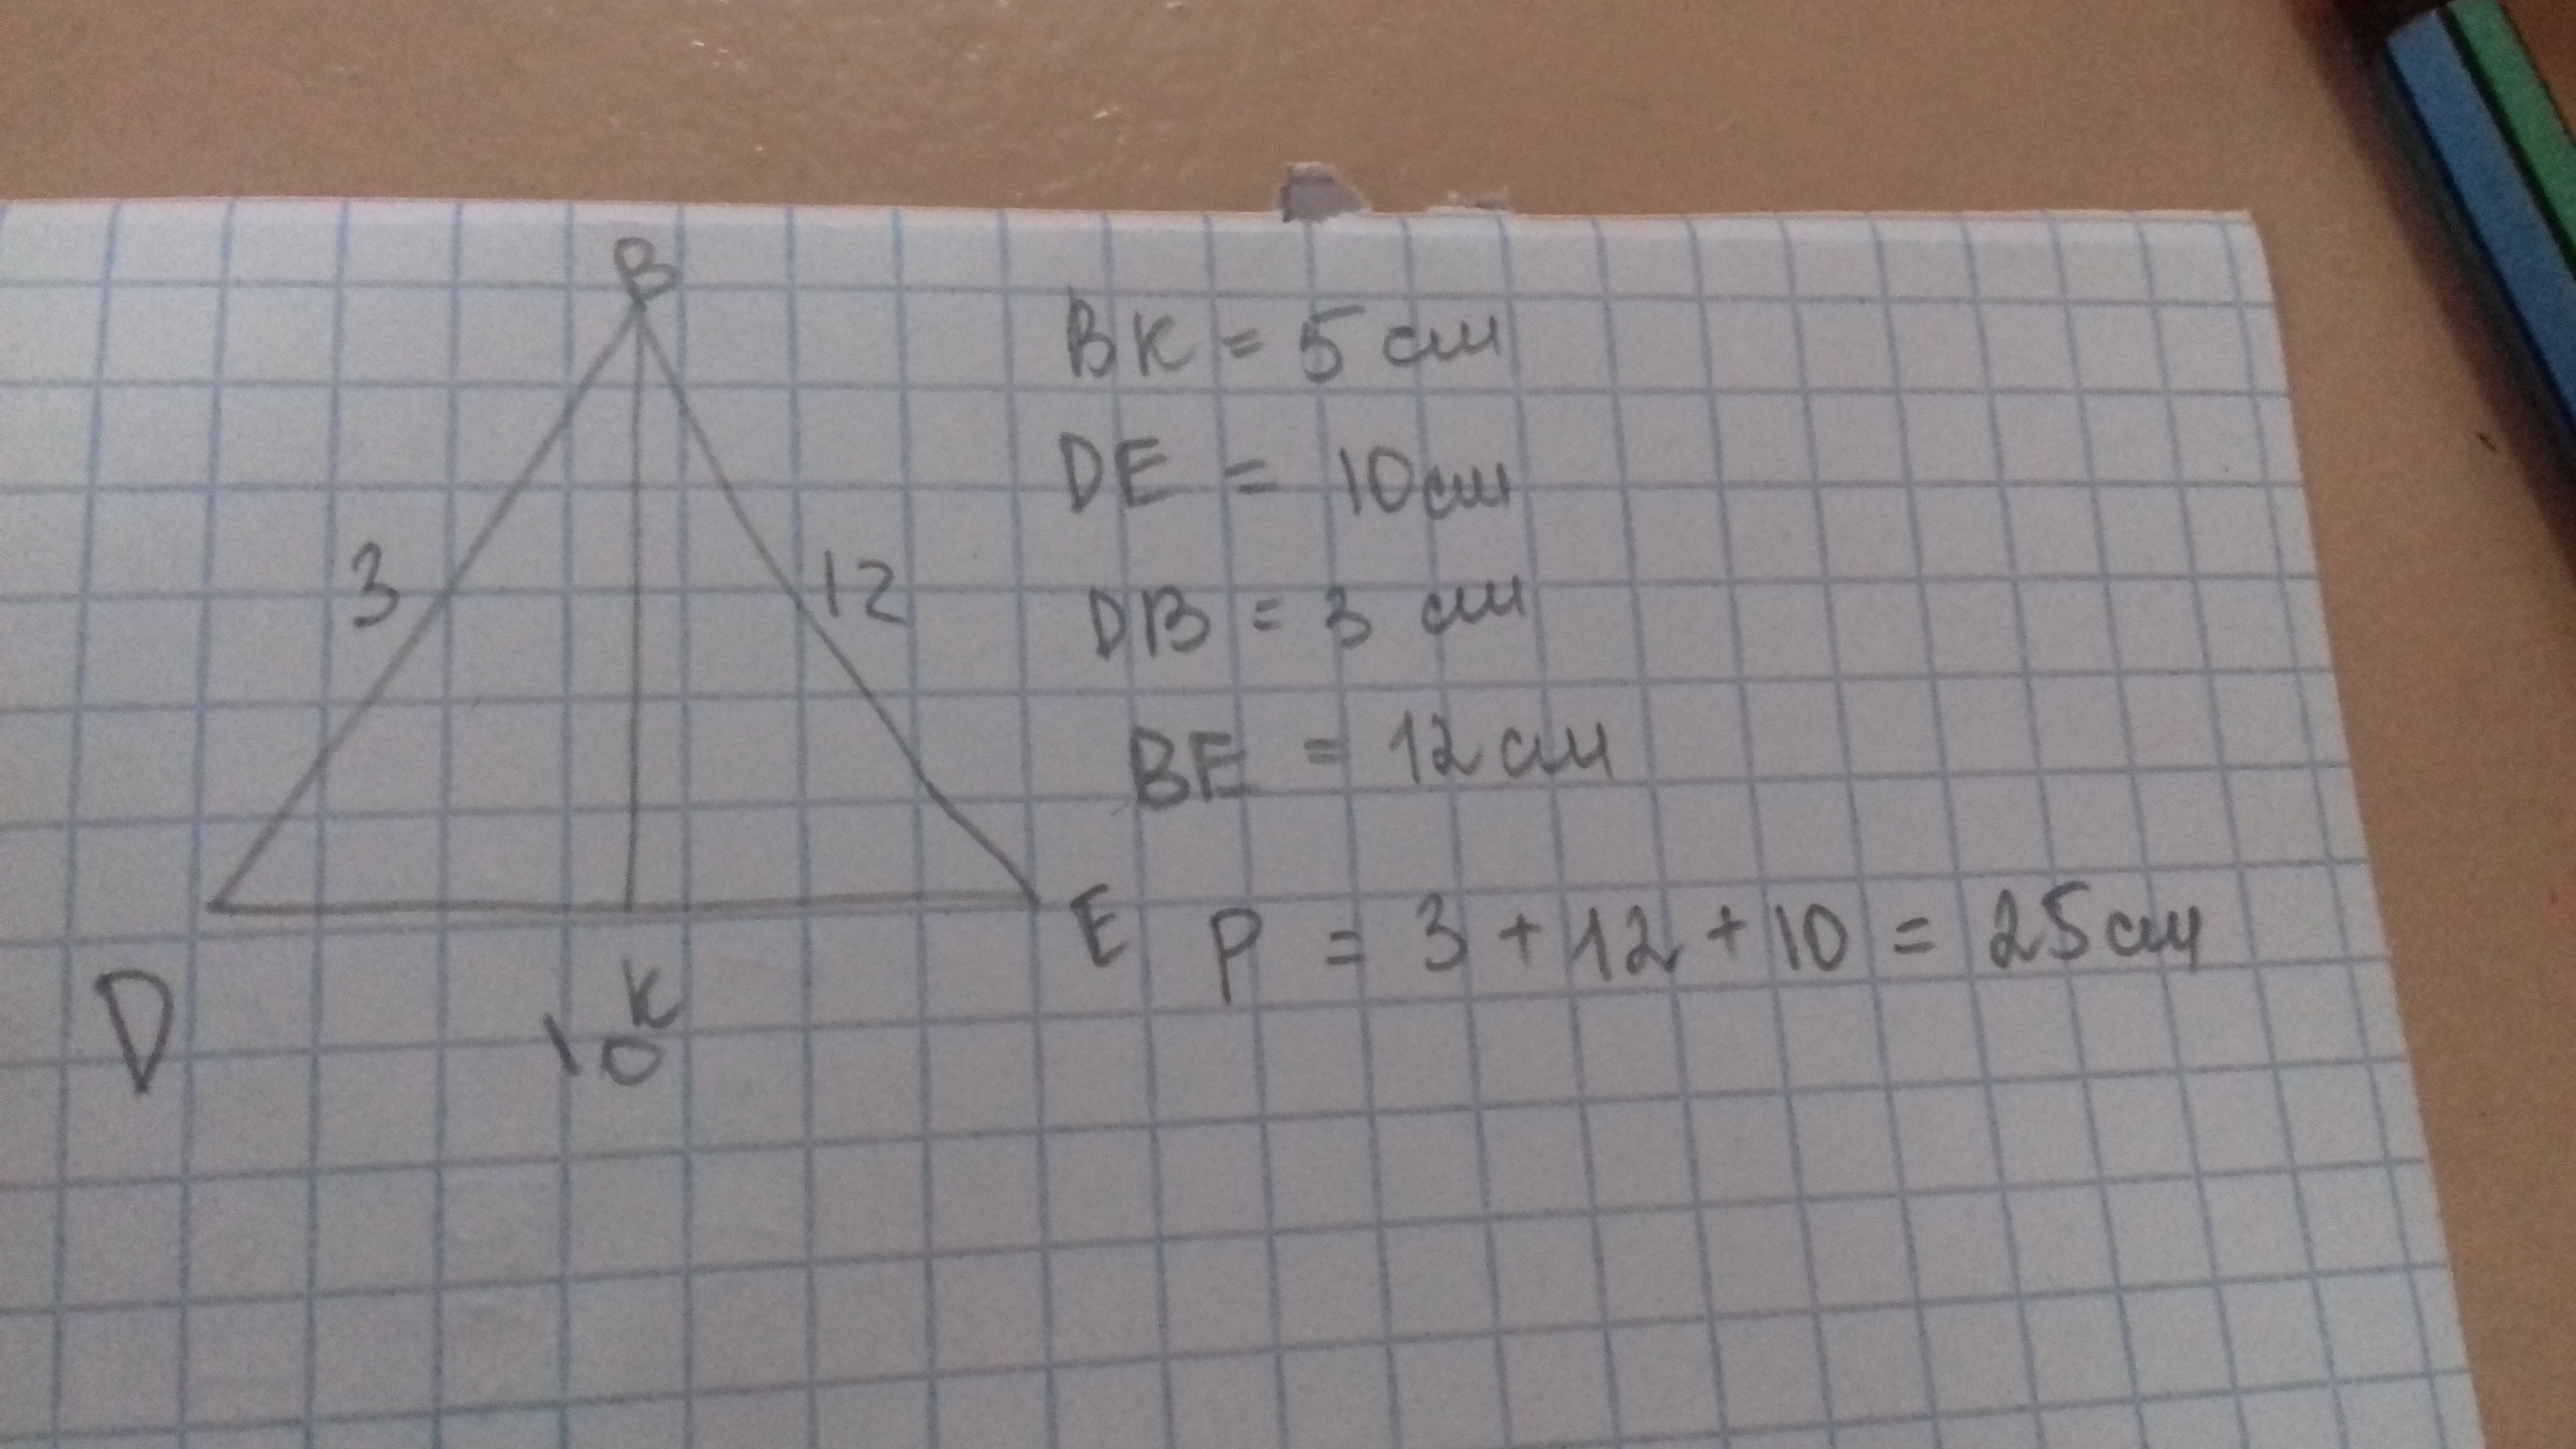 B
BK = 5 см
DE = 10 см
3
12
DB = 3 см
BE = 12 см
D
K
10
E
P = 3 + 12 + 10 = 25 см